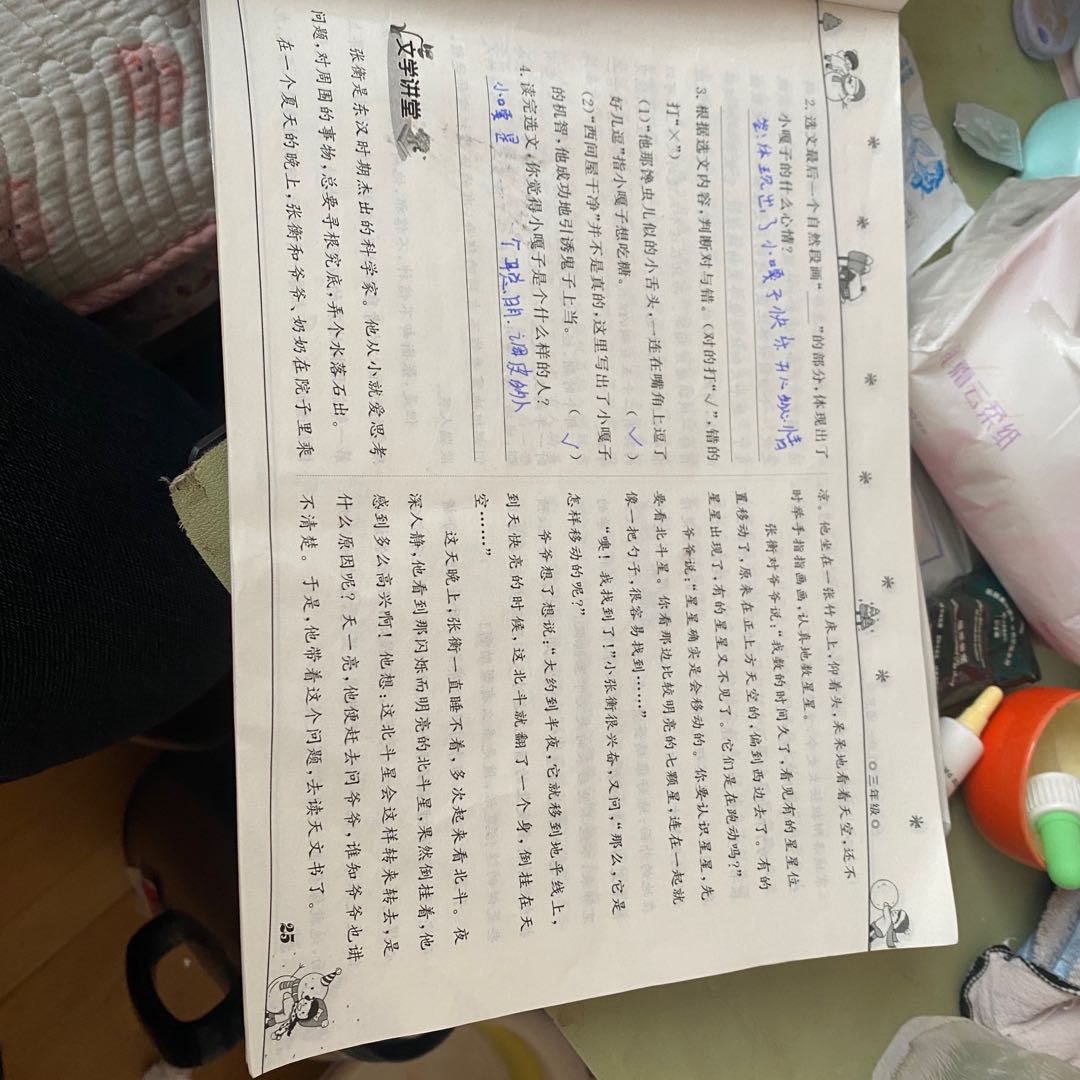 ○三年级○
2.选文最后一个自然段画“____”的部分,体现出了
小嘎子的什么心情?
答:体现出了小嘎子快乐开心的心情
3.根据选文内容,判断对与错。(对的打“√”,错的
打“×”)
(1)“他那馋虫儿似的小舌头,一连在嘴角上逗了
好几逗”指小嘎子想吃糖。 (√)
(2)“西间屋干净”并不是真的,这里写出了小嘎子
的机智,他成功地引诱鬼子上当。 (√)
4.读完选文,你觉得小嘎子是个什么样的人?
小嘎是 个聪明.调皮的人
文学讲堂
张衡是东汉时期杰出的科学家。他从小就爱思考
问题,对周围的事物,总要寻根究底,弄个水落石出。
在一个夏天的晚上,张衡和爷爷、奶奶在院子里乘
凉。他坐在一张竹床上,仰着头,呆呆地看着天空,还不
时举手指指画画,认真地数星星。
张衡对爷爷说:“我数的时间久了,看见有的星星位
置移动了,原来在正上方天空的,偏到西边去了。有的
星星出现了,有的星星又不见了。它们是在跑动吗?”
爷爷说:“星星确实是会移动的。你要认识星星,先
要看北斗星。你看那边比较明亮的七颗星,连在一起就
像一把勺子,很容易找到……”
“噢!我找到了!”小张衡很兴奋,又问,“那么,它是
怎样移动的呢?”
爷爷想了想说:“大约到半夜,它就移到地平线上,
到天快亮的时候,这北斗就翻了一个身,倒挂在天
空……”
这天晚上,张衡一直睡不着,多次起来看北斗。夜
深人静,他看到那闪烁而明亮的北斗星,果然倒挂着,他
感到多么高兴啊!他想:这北斗星会这样转来转去,是
什么原因呢?天一亮,他便赶去问爷爷,谁知爷爷也讲
不清楚。于是,他带着这个问题,去读天文书了。
25